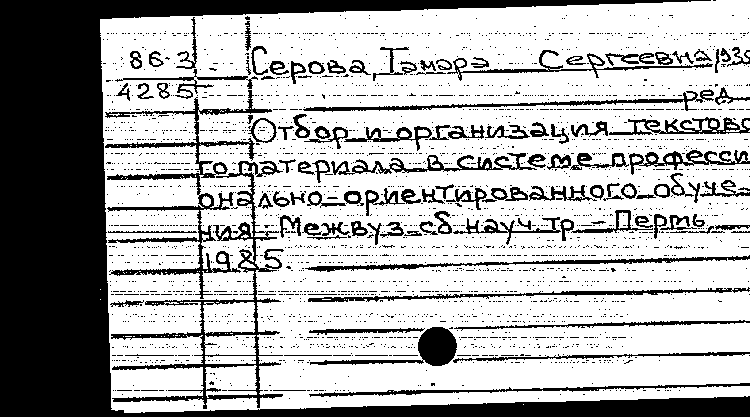 86-3
4285
Серова, Тамара Сергеевна, 193
ред
Отбор и организация текстово
го материала в системе професси
онально-ориентированного обуче-
ния: Межвуз. сб. науч. тр. - Пермь,
1985.